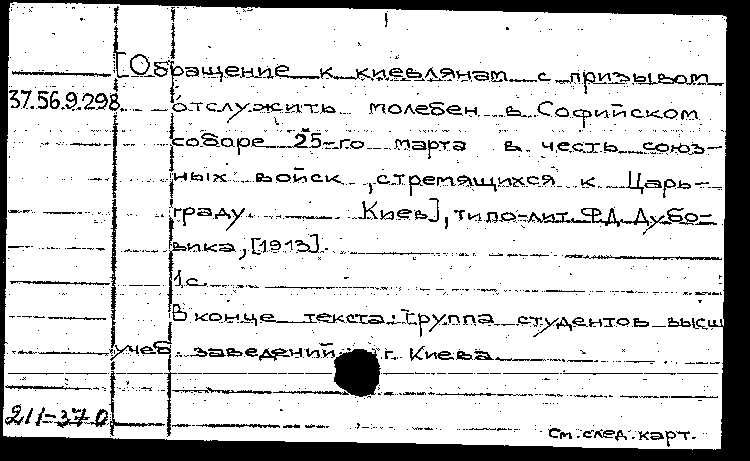 [Обращение к киевлянам с призывом
37.56.9.298 отслужить молебен в Софийском
соборе 25-го марта в честь союз-
ных войск, стремящихся к Царь-
граду. Киев], типо-лит. Ф.Д. Дубо-
вика, [1913].
1 с.
В конце текста: Группа студентов высш
учеб. заведений г. Киева.
211-370
См. след. карт.